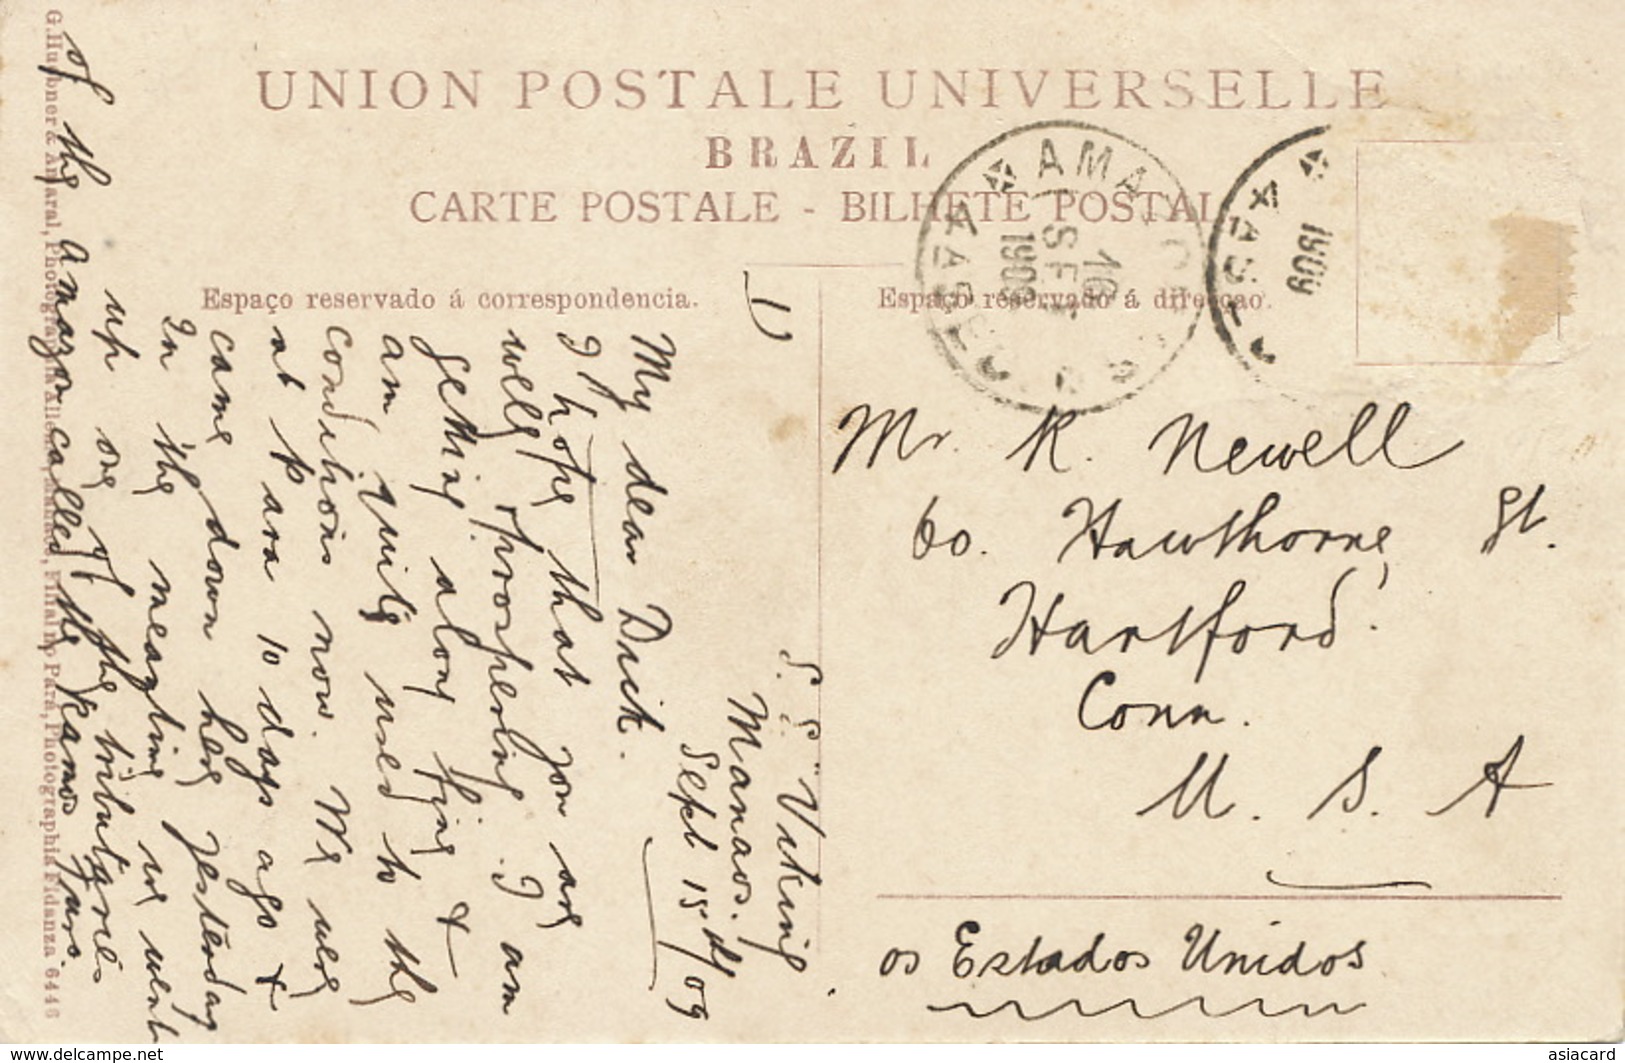 UNION POSTALE UNIVERSELLE
BRAZIL
CARTE POSTALE - BILHETE POSTAL
Espaço reservado á correspondencia.
Espaço reservado á direcção.
1)
S. S. "Viking"
Manaos.
Sept 15th/09
My dear Dick.
I hope that you are
well & prospering. I am
getting along fine &
am quite used to the
conditions now. We were
at Para 10 days ago &
came down here yesterday
In the meantime we went
up one of the tributaries
of the Amazon called the
Mr. R. Newell
60. Hawthorne St.
Hartford.
Conn.
U. S. A
os Estados Unidos
AMAZONAS
16
SET
1909
1909
G. Huebner & Amaral, Photographia Allemã, Manáos, Filial no Pará, Photographia Fidanza 6446
www.delcampe.net
asiacard